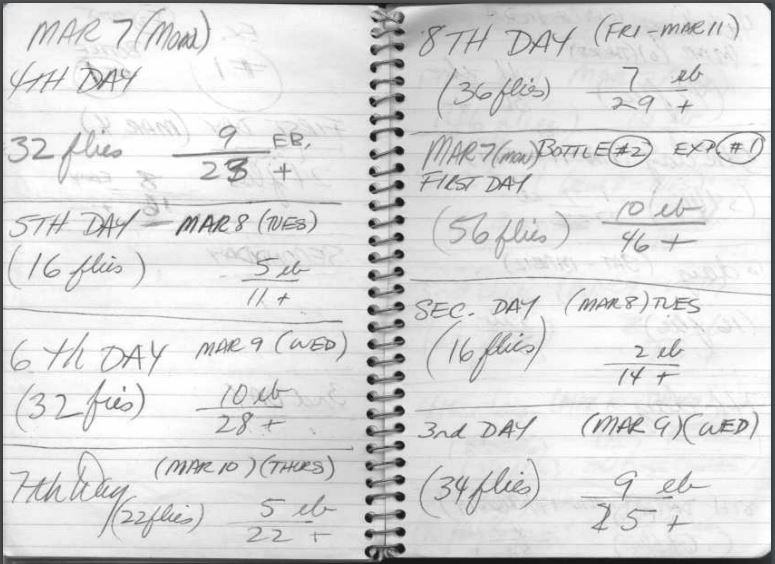 MAR 7 (MON)
4TH DAY
32 flies 9 EB.
23 +
5TH DAY - MAR 8 (TUES)
(16 flies) 5 eb
11 +
6th DAY MAR 9 (WED)
(32 fies) 10 eb
28 +
7th Day (MAR 10) (THURS)
(22 flies) 5 eb
22 +
8TH DAY (FRI-MAR 11)
(36 flies) 7 eb
29 +
MAR 7 (MON) BOTTLE #2 EXP. #1
FIRST DAY
(56 flies) 10 eb
46 +
SEC. DAY (MAR 8) TUES
(16 flies) 2 eb
14 +
3rd DAY (MAR 9) (WED)
(34 flies) 9 eb
25 +